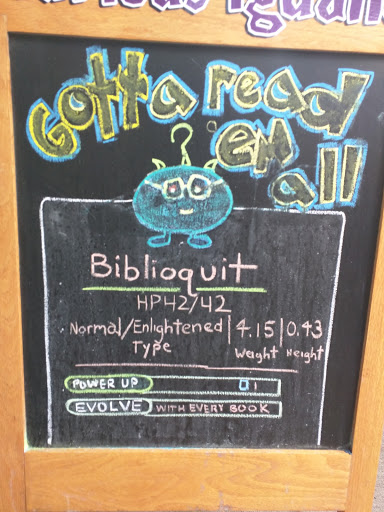 Gotta read
'em
all
Biblioquit
HP42/42
Normal/Enlightened | 4.15 | 0.43
Type Weight Height
POWER UP 1
EVOLVE WITH EVERY BOOK